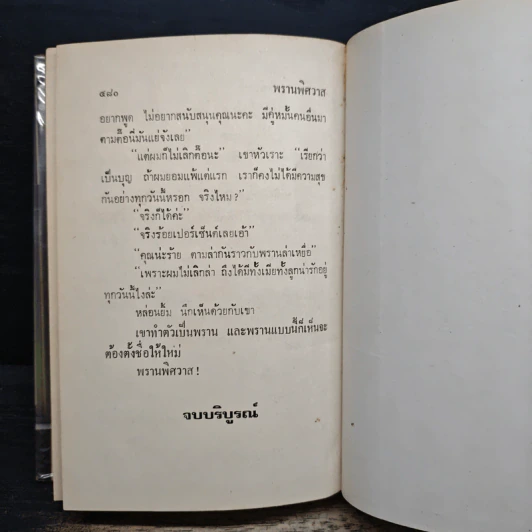 ๕๘๓ พรานพิศวาส
อยากพูด ไม่อยากสนับสนุนคุณนะคะ มีคู่หมั้นคนอื่นมา
ตามตื๊อนี่มันแย่จังเลย”
“แต่ผมก็ไม่เลิกตื๊อนะ” เขาหัวเราะ “เรียกว่า
เป็นบุญ ถ้าผมยอมแพ้แต่แรก เราก็คงไม่ได้มีความสุข
กันอย่างทุกวันนี้หรอก จริงไหม?”
“จริงก็ได้ค่ะ”
“จริงร้อยเปอร์เซ็นต์เลยเอ้า”
“คุณน่ะร้าย ตามล่ากันราวกับพรานล่าเหยื่อ”
“เพราะผมไม่เลิกล่า ถึงได้มีทั้งเมียทั้งลูกน่ารักอยู่
ทุกวันนี้ไงล่ะ”
หล่อนยิ้ม นึกเห็นด้วยกับเขา
เขาทำตัวเป็นพราน และพรานแบบนี้ก็เห็นจะ
ต้องตั้งชื่อให้ใหม่
พรานพิศวาส!
จบบริบูรณ์